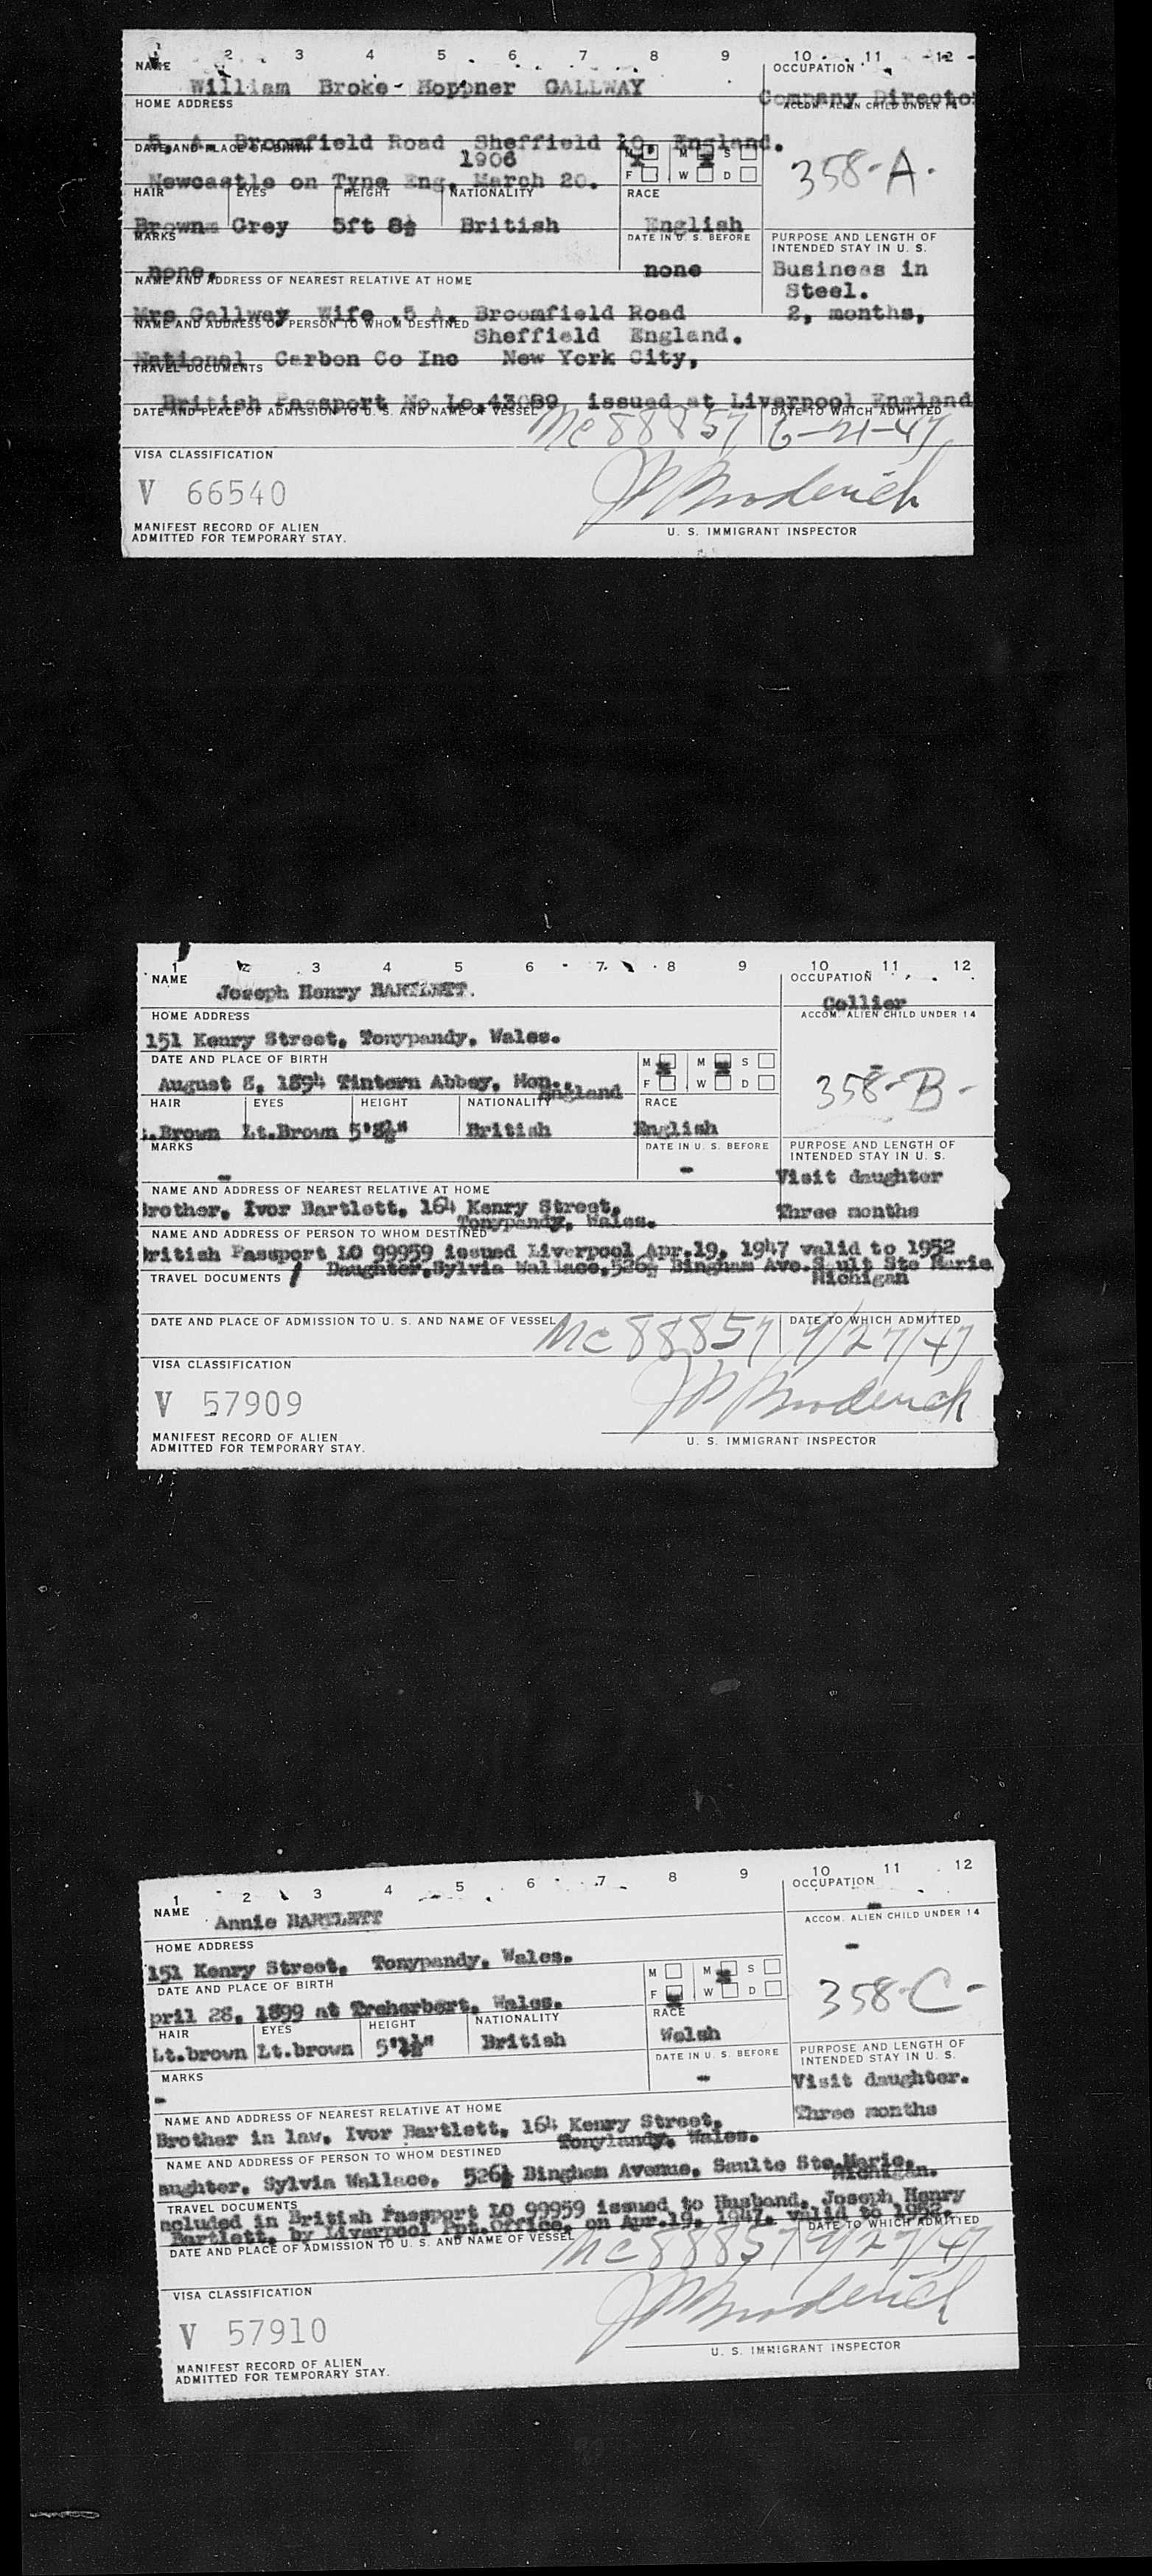 1 2 3 4 5 6 7 8 9 10 11 12
NAME
OCCUPATION
William Broke-Hoppner GALLWAY
Company Director
HOME ADDRESS
ACCOM. ALIEN CHILD UNDER 14
5, A. Broomfield Road Sheffield 10, England.
DATE AND PLACE OF BIRTH
1906
M M S
Newcastle on Tyne Eng. March 20.
F W D
358-A-
HAIR EYES HEIGHT NATIONALITY RACE
Brown Grey 5ft 8½ British English
MARKS
DATE IN U. S. BEFORE
PURPOSE AND LENGTH OF
INTENDED STAY IN U. S.
none.
none
Business in
Steel.
NAME AND ADDRESS OF NEAREST RELATIVE AT HOME
Mrs Gallway Wife ,5 A. Broomfield Road
2, months,
NAME AND ADDRESS OF PERSON TO WHOM DESTINED
Sheffield England.
National Carbon Co Inc New York City,
TRAVEL DOCUMENTS
British Passport No Lo.43089 issued at Liverpool England
DATE AND PLACE OF ADMISSION TO U. S. AND NAME OF VESSEL
DATE TO WHICH ADMITTED
Mc 88857 6-21-47
VISA CLASSIFICATION
V 66540
JP Broderick
MANIFEST RECORD OF ALIEN
ADMITTED FOR TEMPORARY STAY.
U. S. IMMIGRANT INSPECTOR
1 2 3 4 5 6 7 8 9 10 11 12
NAME
OCCUPATION
Joseph Henry BARTLETT.
Collier
HOME ADDRESS
ACCOM. ALIEN CHILD UNDER 14
151 Kenry Street, Tonypandy, Wales.
DATE AND PLACE OF BIRTH
M M S
-
August 8, 1894 Tintern Abbey, Mon.,
England
F W D
358-B-
HAIR EYES HEIGHT NATIONALITY RACE
.Brown Lt.Brown 5'8½" British English
MARKS
DATE IN U. S. BEFORE
PURPOSE AND LENGTH OF
INTENDED STAY IN U. S.
-
-
Visit daughter
NAME AND ADDRESS OF NEAREST RELATIVE AT HOME
Brother, Ivor Bartlett, 164 Kenry Street,
Three months
Tonypandy, Wales.
NAME AND ADDRESS OF PERSON TO WHOM DESTINED
British Passport LO 99959 issued Liverpool Apr.19, 1947 valid to 1952
Daughter,Sylvia Wallace,526½ Bingham Ave.Sault Ste Marie
TRAVEL DOCUMENTS
Michigan
DATE AND PLACE OF ADMISSION TO U. S. AND NAME OF VESSEL
DATE TO WHICH ADMITTED
Mc 88857 7/27/47
VISA CLASSIFICATION
V 57909
JP Broderick
MANIFEST RECORD OF ALIEN
ADMITTED FOR TEMPORARY STAY.
U. S. IMMIGRANT INSPECTOR
1 2 3 4 5 6 7 8 9 10 11 12
NAME
OCCUPATION
Annie BARTLETT
-
HOME ADDRESS
ACCOM. ALIEN CHILD UNDER 14
151 Kenry Street, Tonypandy, Wales.
-
DATE AND PLACE OF BIRTH
M M S
pril 28, 1899 at Treherbert, Wales.
F W D
358-C-
HAIR EYES HEIGHT NATIONALITY RACE
Lt.brown Lt.brown 5'1½" British Welsh
MARKS
DATE IN U. S. BEFORE
PURPOSE AND LENGTH OF
INTENDED STAY IN U. S.
-
-
Visit daughter.
NAME AND ADDRESS OF NEAREST RELATIVE AT HOME
Three months
Brother in law, Ivor Bartlett, 164 Kenry Street,
Tonylandy, Wales.
NAME AND ADDRESS OF PERSON TO WHOM DESTINED
aughter, Sylvia Wallace, 526½ Bingham Avenue, Saulte Ste.Marie,
Michigan.
TRAVEL DOCUMENTS
ncluded in British Passport LO 99959 issued to Husband, Joseph Henry
Bartlett, by Liverpool Ppt.Office, on Apr.19, 1947, valid to 1952.
DATE AND PLACE OF ADMISSION TO U. S. AND NAME OF VESSEL
DATE TO WHICH ADMITTED
Mc 88857 7/27/47
VISA CLASSIFICATION
V 57910
JP Broderick
MANIFEST RECORD OF ALIEN
ADMITTED FOR TEMPORARY STAY.
U. S. IMMIGRANT INSPECTOR